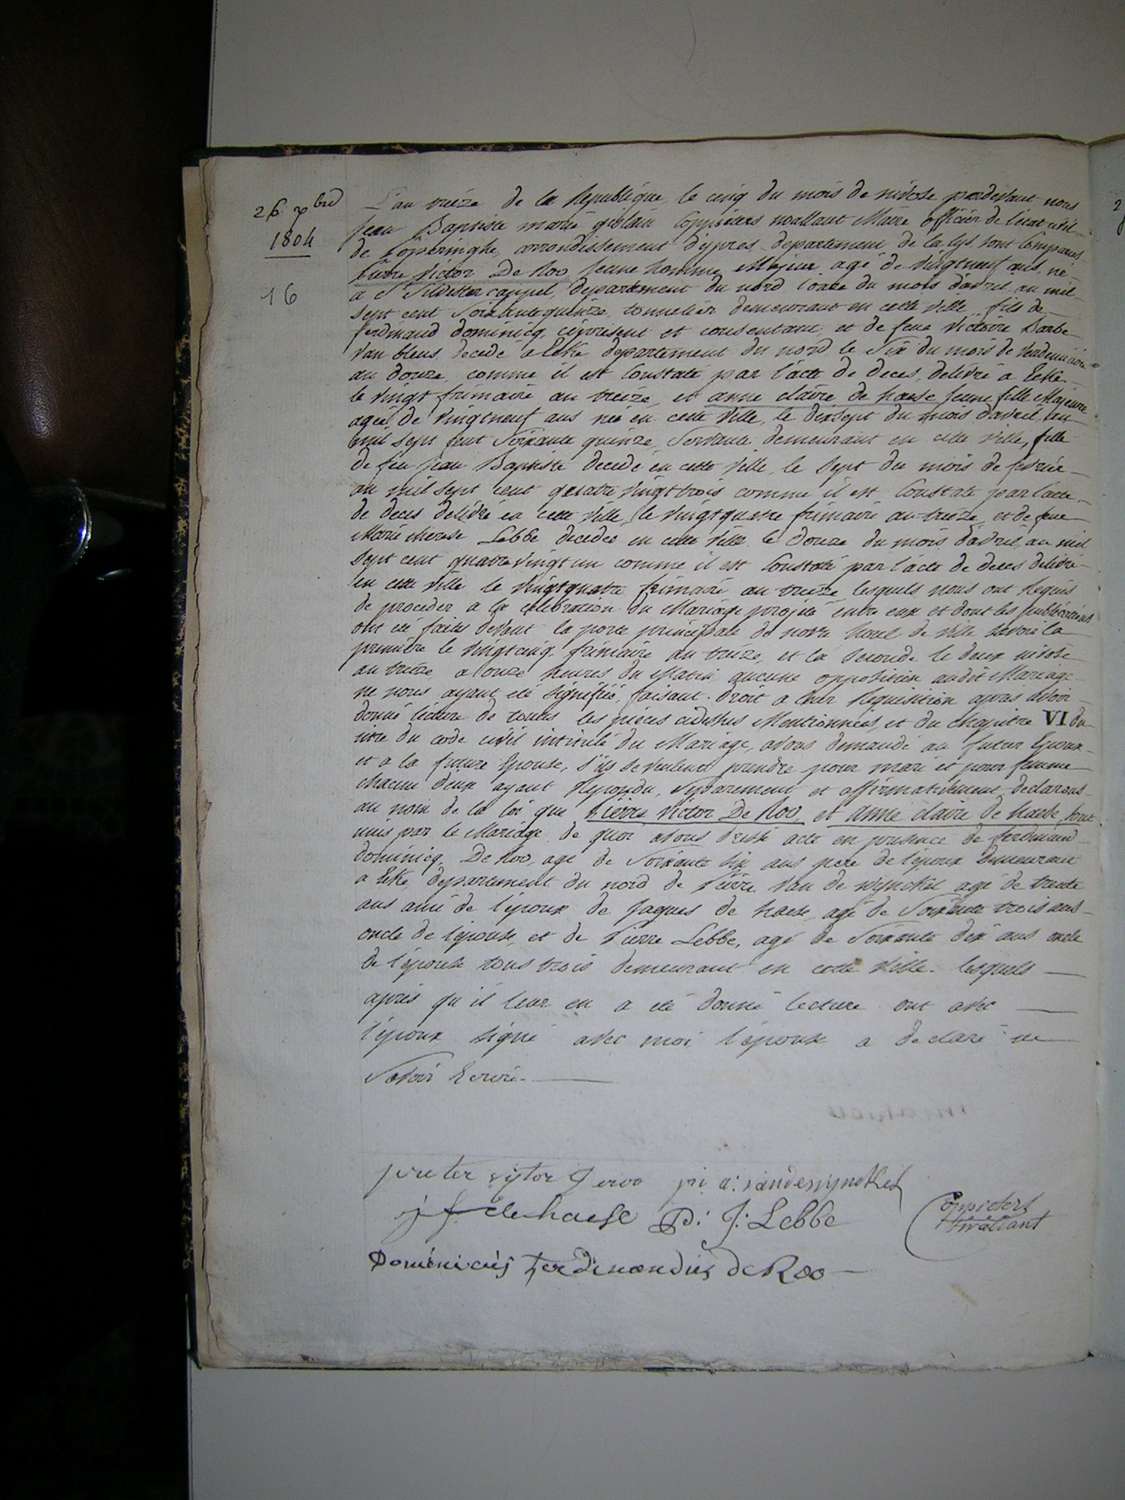 26 xbre
1804
16
L'an treize de la Republique le cinq du mois de nivose pardevant nous
Jean Baptiste marie Maire officier de l'etat civil
de Poperinghe, arrondissement d'ypres departement de la lys sont Comparus
Pierre Victor De Roo Jeune homme Majeur agé de Vingtneuf ans né
a St Silvestre cappel, departement du nord du mois d'avril an mil
sept cent Soixantequinze, tonnelier demeurant en cette ville fils de
ferdinand dominicq cipresent et consentant et de feue Victoire Barbe
decede a Eeke departement du nord le Six du mois de Vendemiaire
an douze, comme il est Constaté par l'acte de deces, delivré a Eeke
le vingt frimaire an treize, et anne claire de haese Jeune fille Majeure
agée de Vingtneuf ans née en cette Ville, le dixsept du mois d'avril an
mil sept cent Soixante quinze, Servante demeurant en cette ville, fille
de feu Jean Baptiste decedé en cette ville le sept du mois de fevrier
an mil sept cent quatre vingt trois comme il est Constaté par l'acte
de deces delivré en cette ville, le vingtquatre frimaire an treize et de feue
Marie therese Lebbe decedée en cette Ville le Douze du mois d'avril an mil
sept cent quatre vingt un comme il est Constaté par l'acte de deces delivré
en cette ville le vingtquatre frimaire an treize lesquels nous ont Requis
de proceder a la celebration du Mariage projeté entre eux et dont les publications
ont été faites devant la porte principale de notre hotel de ville Savoir la
premiere le vingtcinq frimaire an treize, et la seconde le deux nivose
an treize a onze heures du Matin aucune opposition audit Mariage
ne nous ayant été signifiée, faisant droit a leur Requisition apres avoir
donné lecture de toutes les pieces cidessus Mentionnées, et du chapitre VI du
titre du code civil intitulé du Mariage, avons demandé au futur Epoux
et a la future Epouse, s'ils se veulent prendre pour mari et pour femme
chacun d'eux ayant Repondu, Separement et affirmativement, declarons
au nom de la loi que Pierre Victor De Roo et anne claire de haese sont
unis par le Mariage de quoi avons dressé acte en presence de ferdinand
dominicq De Roo, agé de Soixante six ans pere de l'epoux demeurant
a Eeke departement du nord de Pierre Van de wynckel agé de trente
ans ami de l'epoux de Jaques de haese, agé de Soixante trois ans
oncle de l'epouse, et de Pierre Lebbe, agé de Soixante dix ans oncle
de l'epouse tous trois demeurant en cette Ville. lesquels
après qu'il leur en a eté donné lecture ont avec
l'epoux signé avec moi l'epouse a declaré ne
Savoir Ecrire.
pieter vijtor deroo pi a: vandewynckel
j f dehaese P: J: Lebbe
Dominicus ferdinandus de Roo